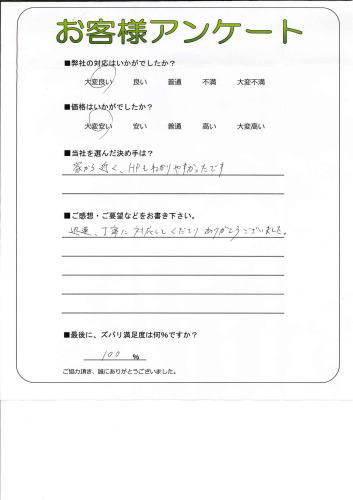 お客様アンケート
■弊社の対応はいかがでしたか?
大変良い 良い 普通 不満 大変不満
■価格はいかがでしたか?
大変安い 安い 普通 高い 大変高い
■当社を選んだ決め手は?
家から近く、HPもわかりやすかったです
■ご感想・ご要望などをお書き下さい。
迅速、丁寧に対応してくださり ありがとうございました。
■最後に、ズバリ満足度は何%ですか?
100 %
ご協力頂き、誠にありがとうございました。